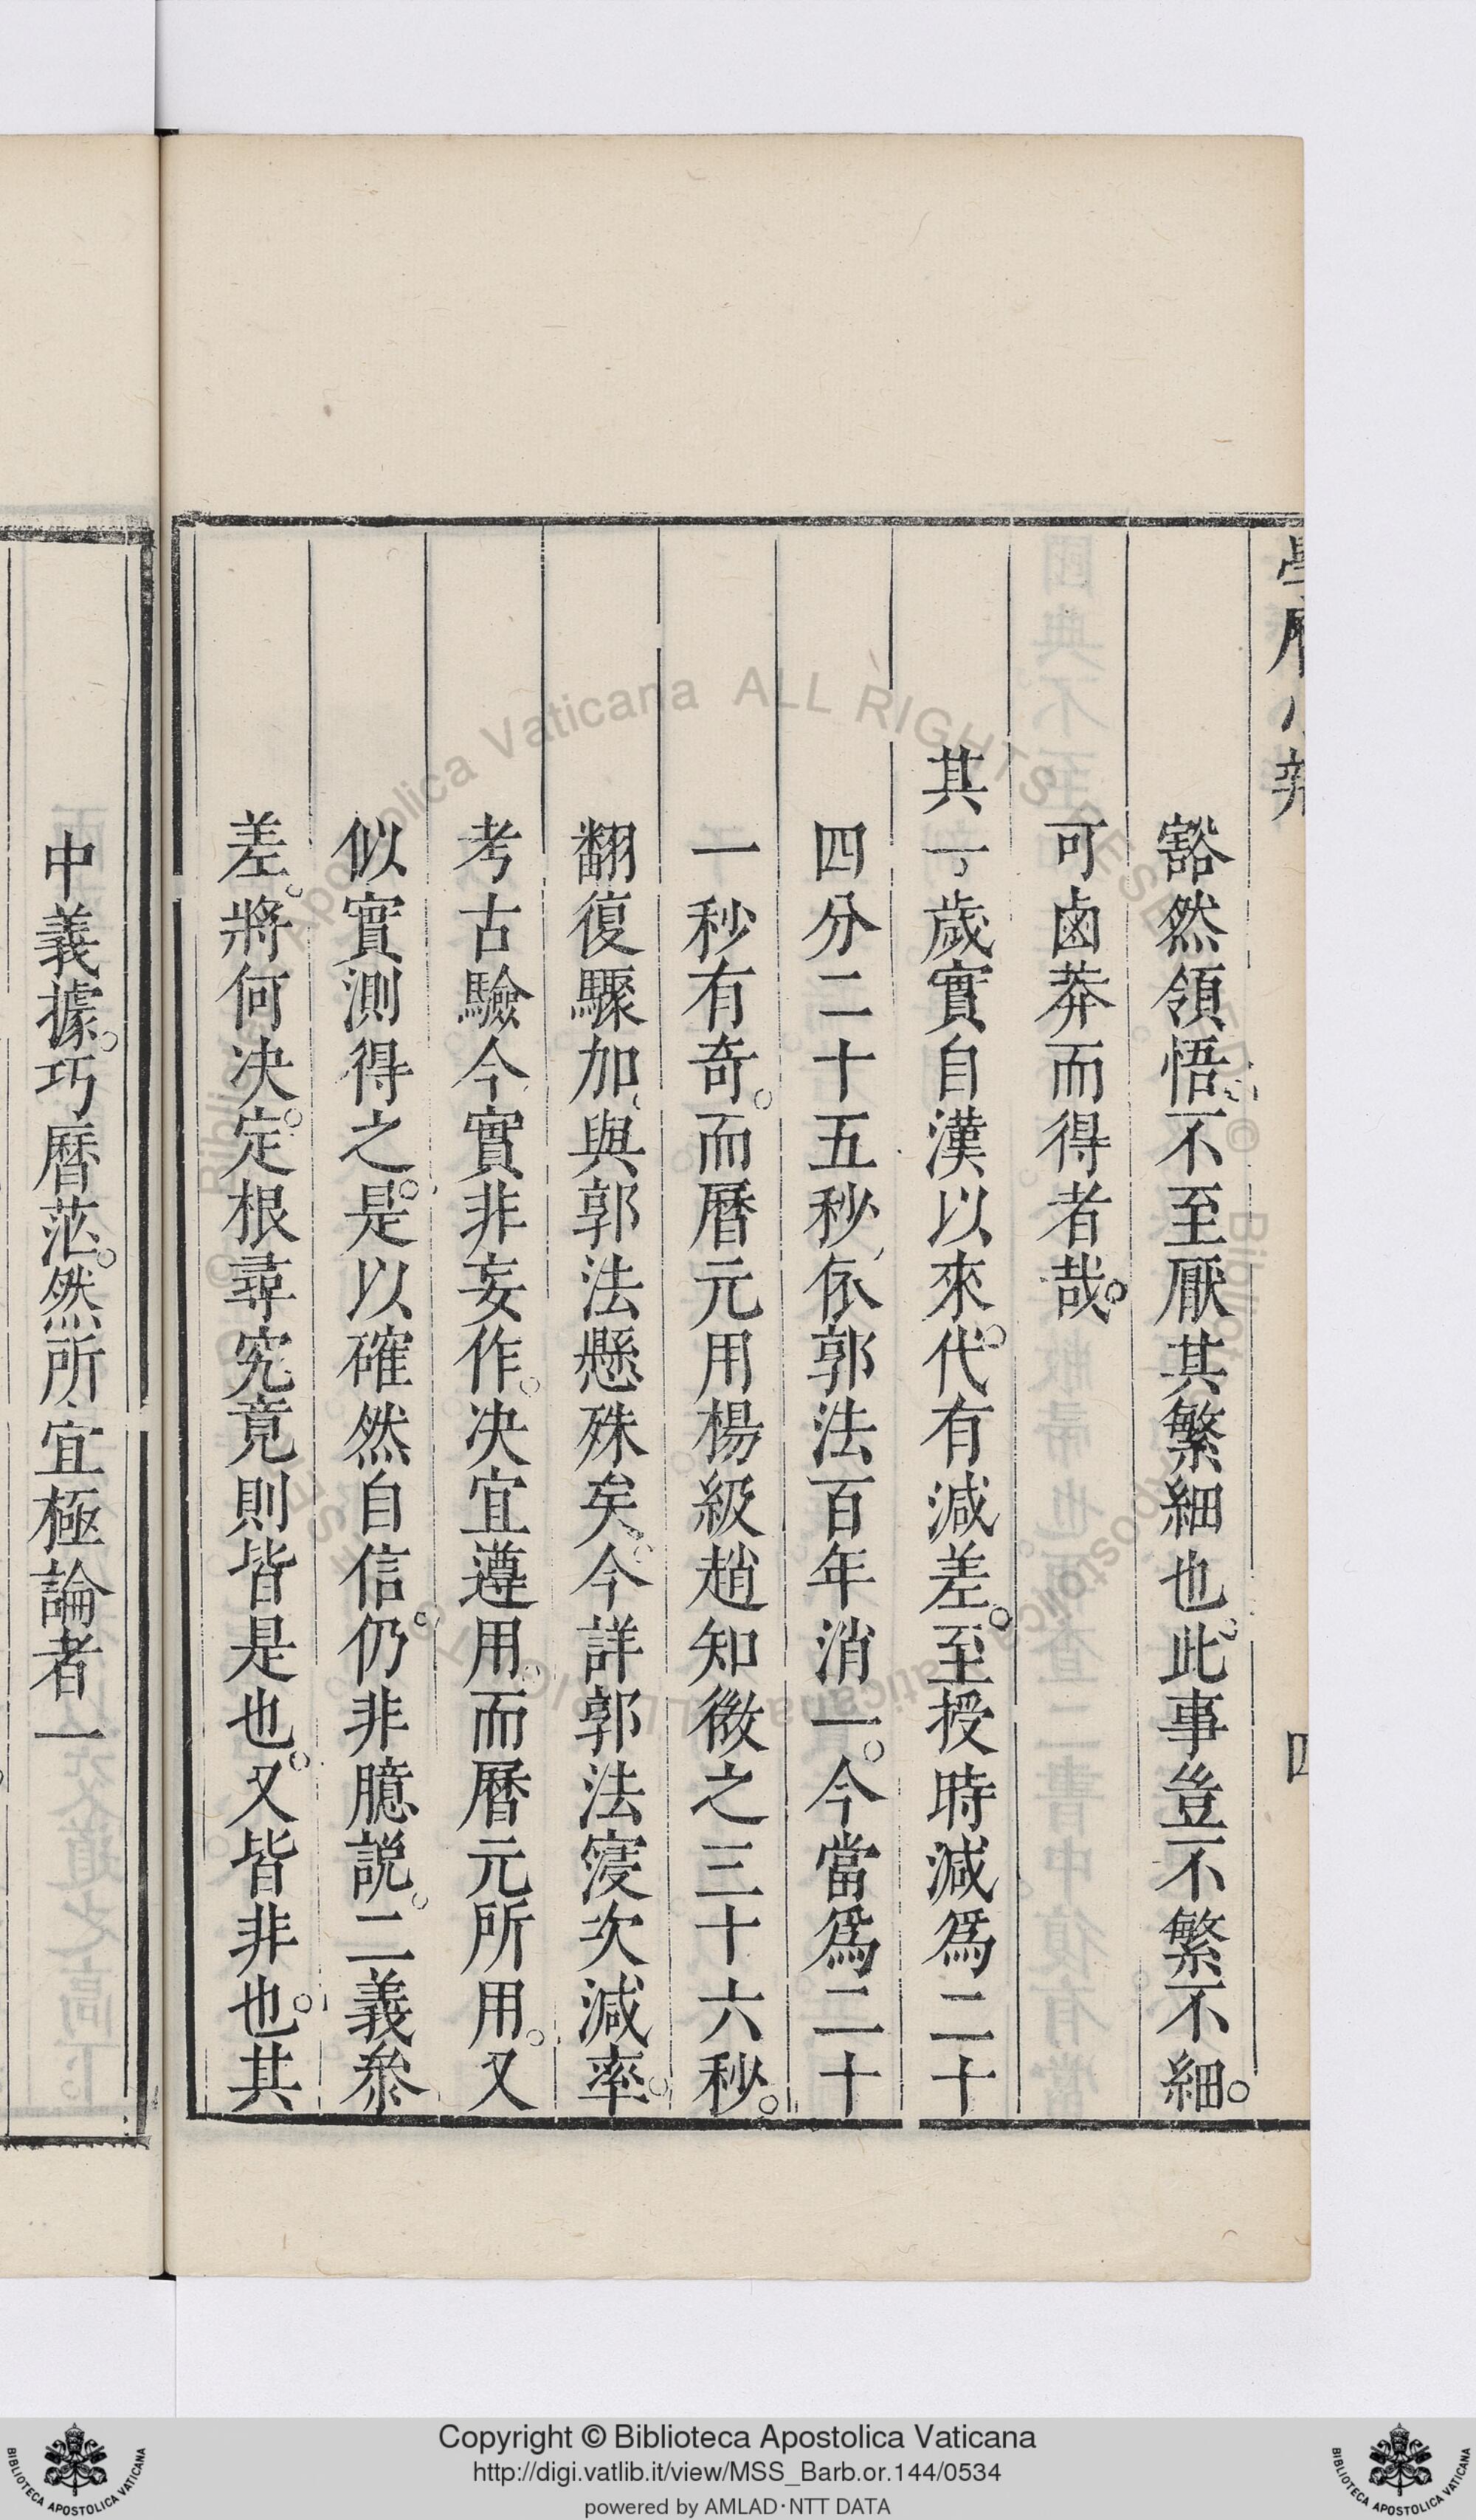 豁然領悟不至厭其繁細也此事豈不繁不細。
可鹵莽而得者哉。
其一歲實自漢以來。代有減差。至授時減爲二十
四分二十五秒、依郭法百年消一。今當爲二十
一秒有奇。而曆元用楊級趙知微之三十六秒。
翻復驟加、與郭法懸殊矣。今詳郭法寖次減率。
考古驗今實非妄作。决宜遵用。而曆元所用。又
似實測得之。是以確然自信。仍非臆説。二義叅
差。將何决。定根尋究竟則皆是也。又皆非也。其
中義據。巧曆茫。然所、宜極論者一
Copyright © Biblioteca Apostolica Vaticana
http://digi.vatlib.it/view/MSS_Barb.or.144/0534
powered by AMLAD·NTT DATA
BIBLIOTECA APOSTOLICA VATICANA
BIBLIOTECA APOSTOLICA VATICANA